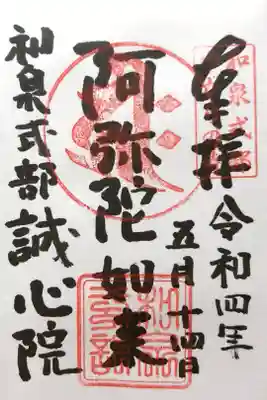 奉拝
令和四年
五月十四日
阿弥陀如来
和泉式部誠心院